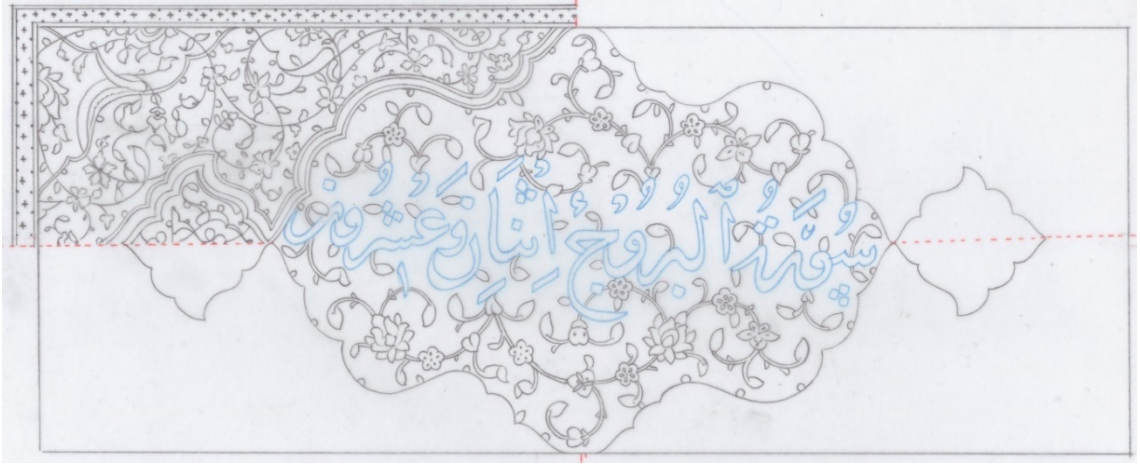 سُورَةُ ٱلْبُرُوجِ ٱثْنَانِ وَعِشْرُونَ